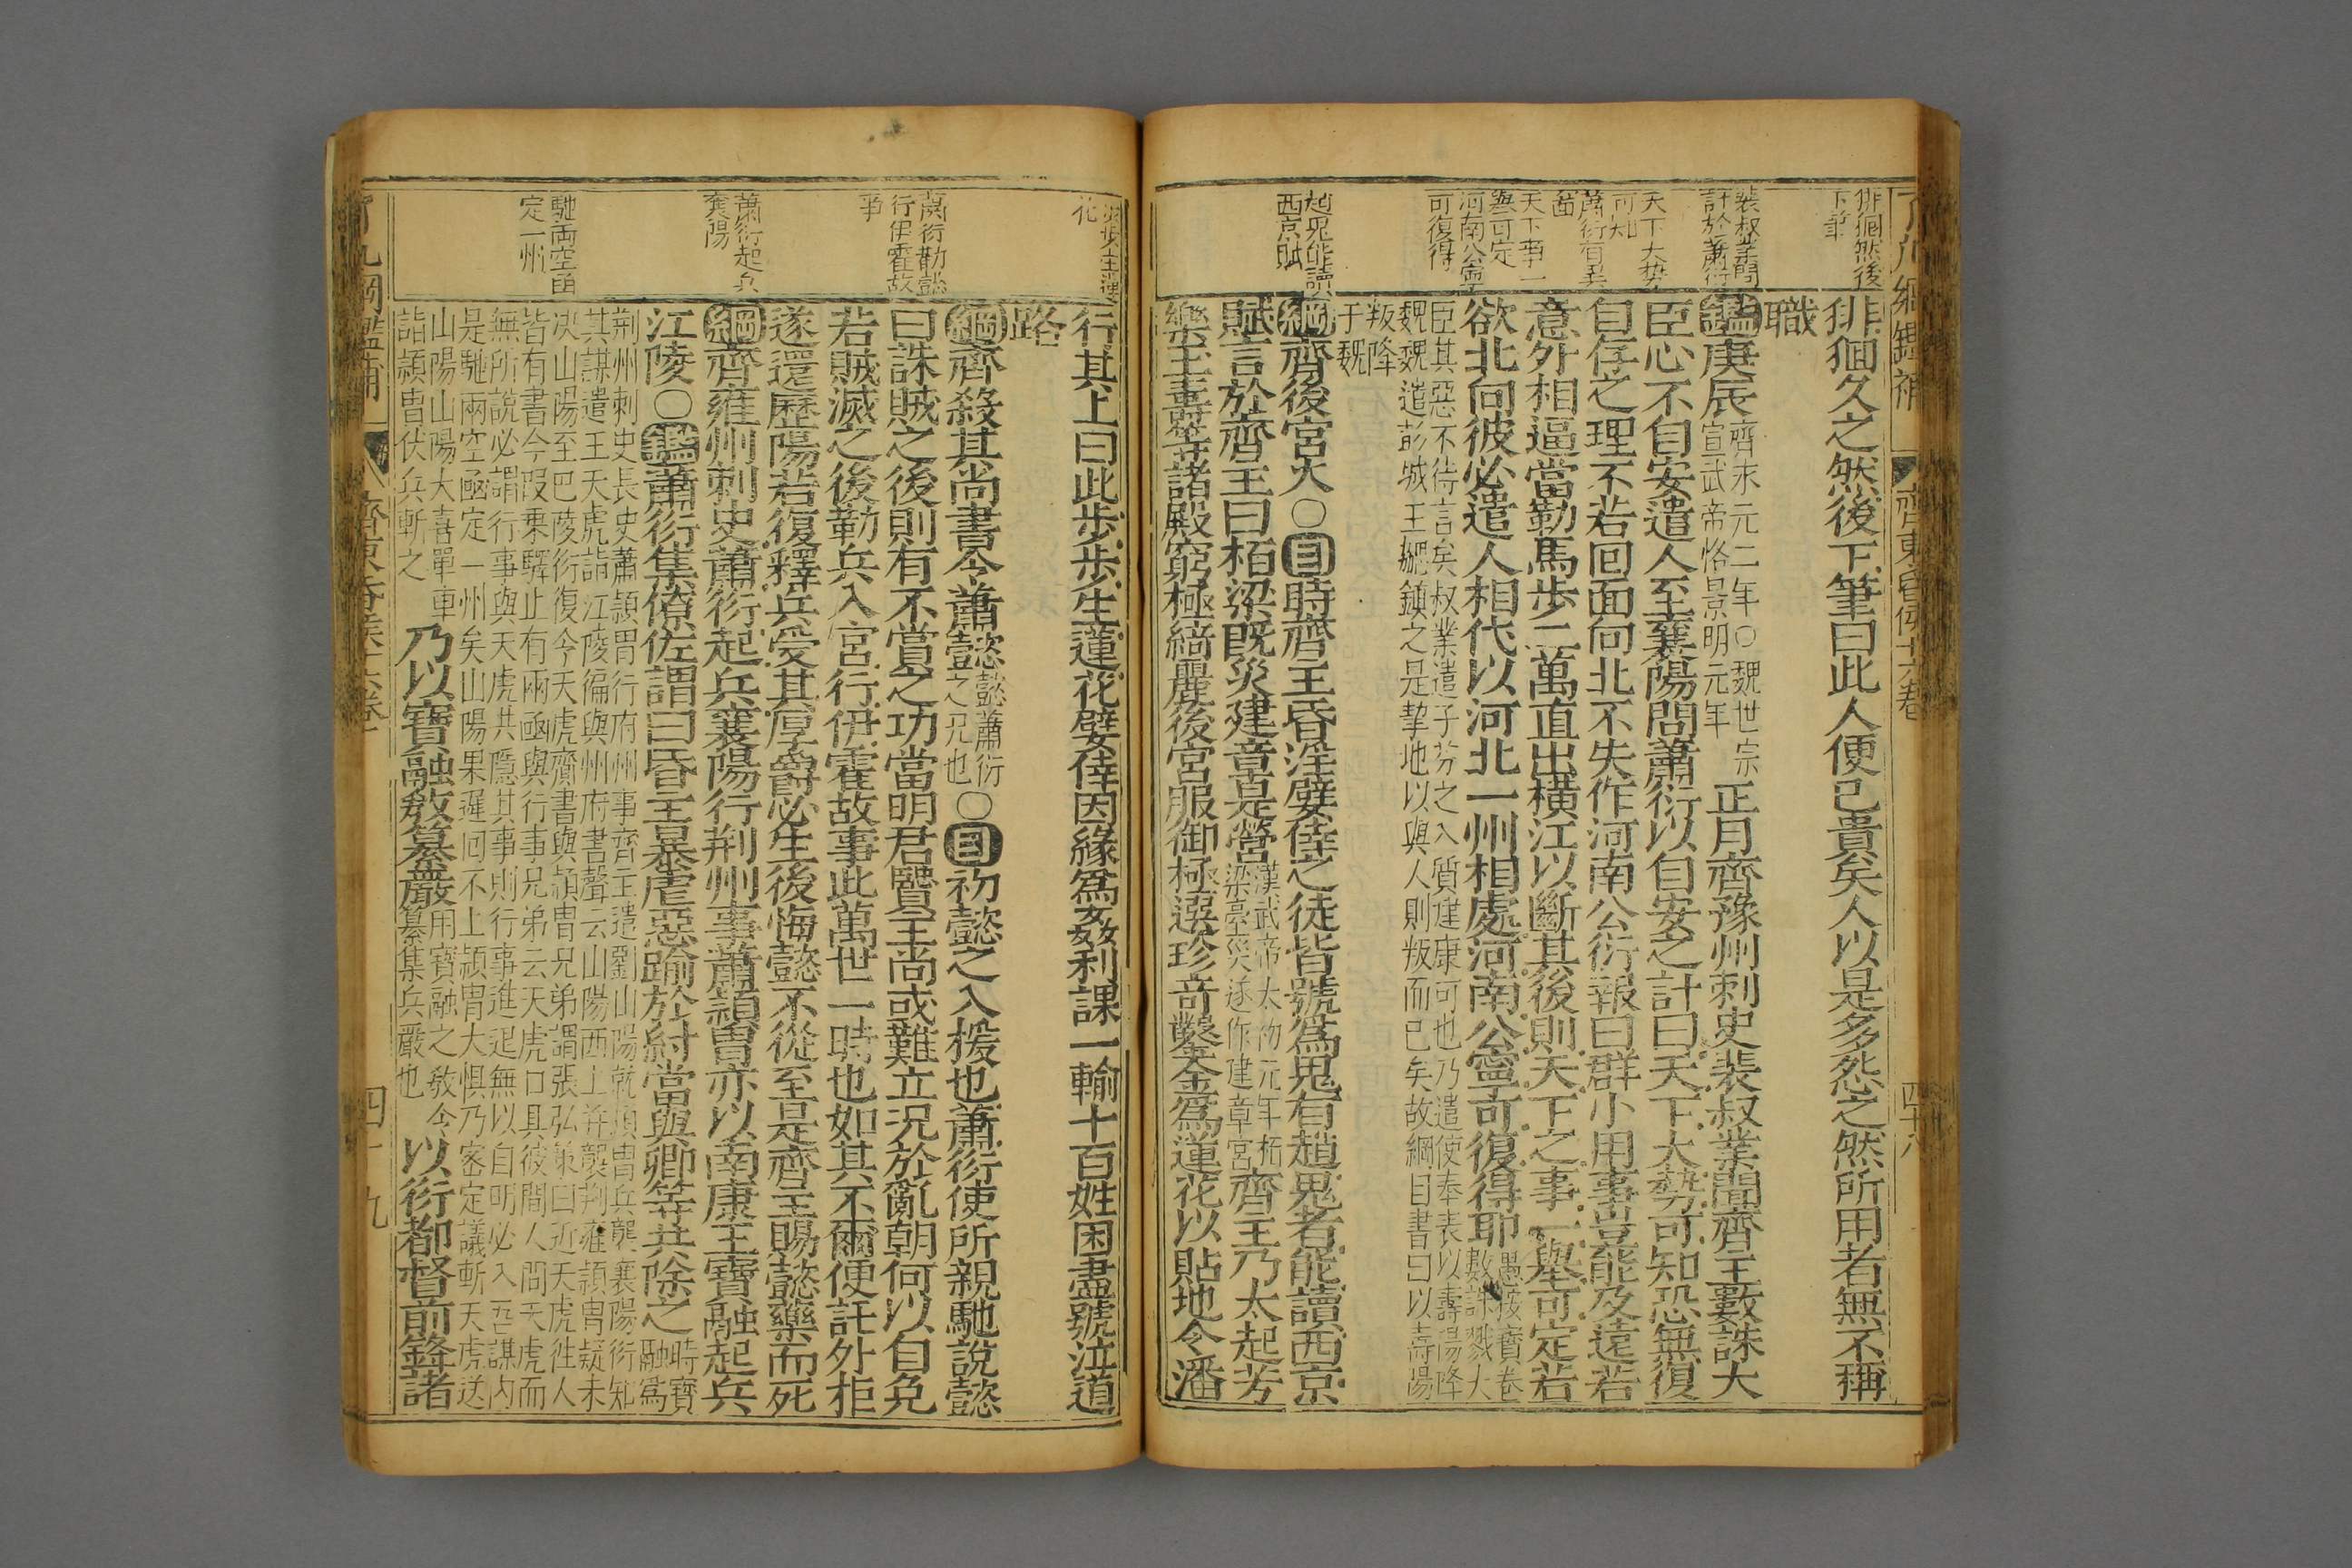 徘徊然後
下筆
裴叔業問
計於蕭衍
天下大勢
可知
蕭衍有異
圖
天下事一
舉可定
河南公寧
可復得
趙鬼能讀
西京賦
徘徊久之然後下筆曰此人便已貴矣人以是多怨之然所用者無不稱
職
鑑庚辰齊永元二年○魏世宗宣武帝恪景明元年正月齊豫州刺史裴叔業聞齊主數誅大
臣心不自安遣人至襄陽問蕭衍以自安之計曰天下大勢可知恐無復
自存之理不若回面向北不失作河南公衍報曰群小用事豈能及遠若
意外相逼當勒馬步二萬直出橫江以斷其後則天下之事一舉可定若
欲北向彼必遣人相代以河北一州相處河南公寧可復得耶愚按寶卷數誅戮大
臣其惡不待言矣叔業遣子芬之入質建康可也乃遣使奉表以壽陽降
魏魏遣彭城王勰鎮之是挈地以與人則叛而已矣故綱目書曰以壽陽
叛降
于魏
綱齊後宮火○目時齊主昏淫嬖倖之徒皆號為鬼有趙鬼者能讀西京
賦言於齊主曰栢梁既災建章是營漢武帝太初元年栢梁臺災遂作建章宮齊主乃大起芳
樂玉壽等諸殿窮極綺麗後宮服御極選珍奇鑿金為蓮花以貼地令潘
了凡綱鑑補
齊東昏侯十六卷
四十八
花
蕭衍勸懿
行伊霍故
事
蕭衍起兵
襄陽
馳兩空函
定一州
行其上曰此步步生蓮花嬖倖因緣為姦利課一輸十百姓困盡號泣道
路
綱齊殺其尚書令蕭懿懿蕭衍之兄也○目初懿之入援也蕭衍使所親馳說懿
曰誅賊之後則有不賞之功當明君賢主尚或難立況於亂朝何以自免
若賊滅之後勒兵入宮行伊霍故事此萬世一時也如其不爾便託外拒
遂還歷陽若復釋兵受其厚爵必生後悔懿不從至是齊主賜懿藥而死
綱齊雍州刺史蕭衍起兵襄陽行荊州事蕭穎冑亦以南康王寶融起兵
江陵○鑑蕭衍集僚佐謂曰昏主暴虐惡踰於紂當與卿等共除之時寶融為
荊州刺史長史蕭穎冑行府州事齊主遣劉山陽就穎冑兵襲襄陽衍知
其謀遣王天虎詣江陵徧與州府書聲云山陽西上并襲荊雍穎冑疑未
決山陽至巴陵衍復令天虎齎書與穎冑兄弟謂張弘策曰近天虎往人
皆有書今段乘驛止有兩函與行事兄弟云天虎口具彼間人問天虎而
無所說必謂行事與天虎共隱其事則行事進退無以自明必入吾謀內
是馳兩空函定一州矣山陽果遲回不上穎冑大懼乃密定議斬天虎送
山陽山陽大喜單車
詣穎冑伏兵斬之乃以寶融教纂嚴用寶融之教令纂集兵嚴也以衍都督前鋒諸
四十九